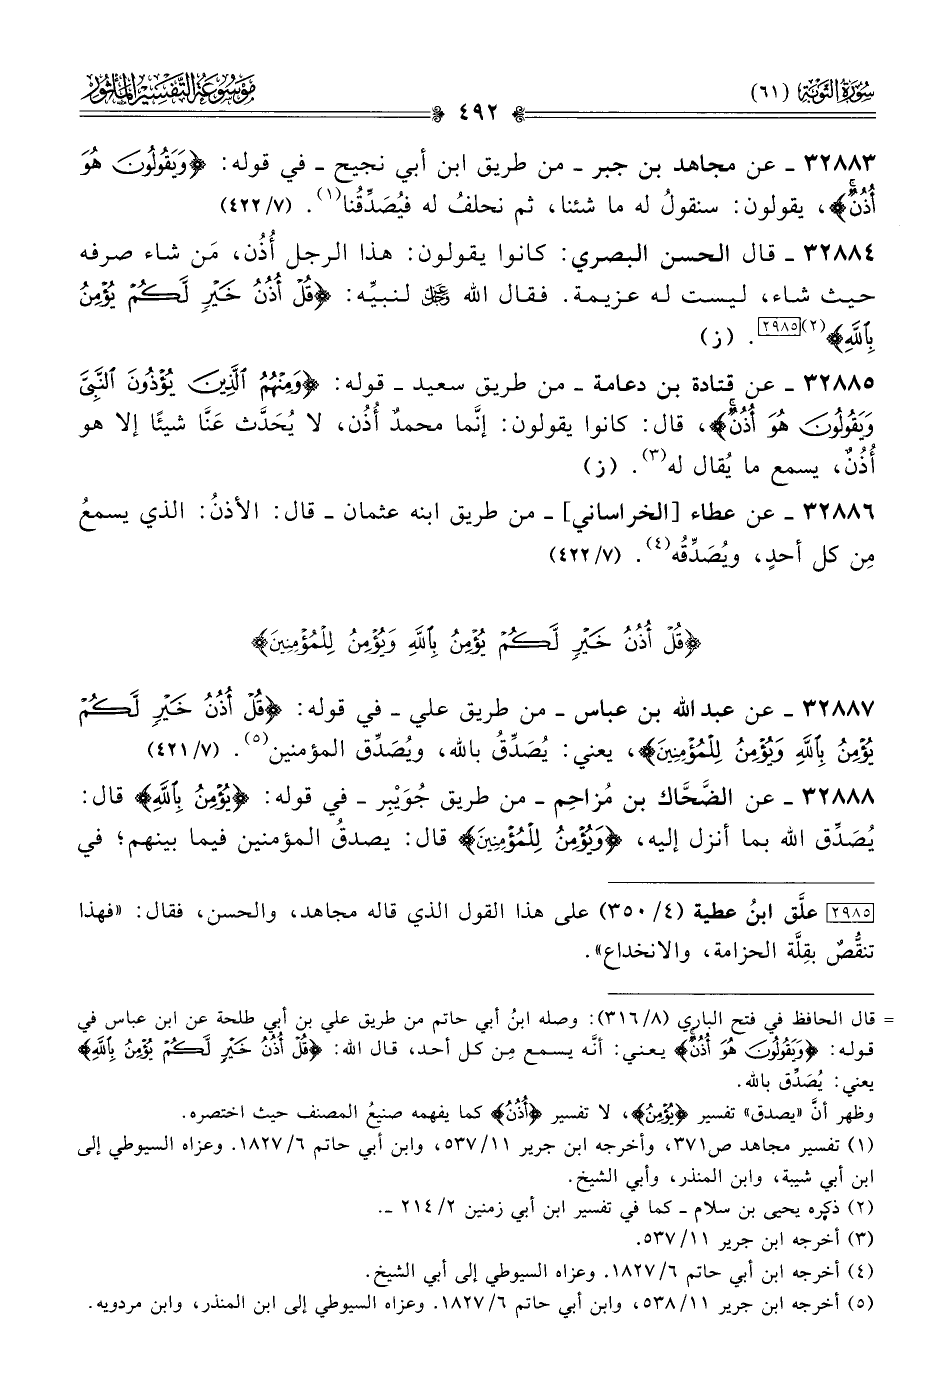 سُورَةُ التَّوْبَةِ (٦١)
مَوْسُوعَةُ التَّفْسِيرِ المَأْثُورِ
٤٩٢
٣٢٨٨٣ ـ عن مجاهد بن جبر ـ من طريق ابن أبي نجيح ـ في قوله: ﴿وَيَقُولُونَ هُوَ
أُذُنٌ﴾، يقولون: سنقولُ له ما شئنا، ثم نحلفُ له فيُصَدِّقُنا(١). (٤٢٢/٧)
٣٢٨٨٤ ـ قال الحسن البصري: كانوا يقولون: هذا الرجل أُذُن، مَن شاء صرفه
حيث شاء، ليست له عزيمة. فقال الله ﷻ لنبيِّه: ﴿قُلْ أُذُنُ خَيْرٍ لَّكُمْ يُؤْمِنُ
بِٱللَّهِ﴾(٢)[٢٩٨٥]. (ز)
٣٢٨٨٥ ـ عن قتادة بن دعامة ـ من طريق سعيد ـ قوله: ﴿وَمِنْهُمُ ٱلَّذِينَ يُؤْذُونَ ٱلنَّبِىَّ
وَيَقُولُونَ هُوَ أُذُنٌ﴾، قال: كانوا يقولون: إنَّما محمدٌ أُذُن، لا يُحَدَّث عَنَّا شيئًا إلا هو
أُذُنٌ، يسمع ما يُقال له(٣). (ز)
٣٢٨٨٦ ـ عن عطاء [الخراساني] ـ من طريق ابنه عثمان ـ قال: الأذنُ: الذي يسمعُ
مِن كل أحدٍ، ويُصَدِّقُه(٤). (٤٢٢/٧)
﴿قُلْ أُذُنُ خَيْرٍ لَّكُمْ يُؤْمِنُ بِٱللَّهِ وَيُؤْمِنُ لِلْمُؤْمِنِينَ﴾
٣٢٨٨٧ ـ عن عبدالله بن عباس ـ من طريق علي ـ في قوله: ﴿قُلْ أُذُنُ خَيْرٍ لَّكُمْ
يُؤْمِنُ بِٱللَّهِ وَيُؤْمِنُ لِلْمُؤْمِنِينَ﴾، يعني: يُصَدِّقُ بالله، ويُصَدِّق المؤمنين(٥). (٤٢١/٧)
٣٢٨٨٨ ـ عن الضَّحَّاك بن مُزاحِم ـ من طريق جُوَيْبِر ـ في قوله: ﴿يُؤْمِنُ بِٱللَّهِ﴾ قال:
يُصَدِّق الله بما أنزل إليه، ﴿وَيُؤْمِنُ لِلْمُؤْمِنِينَ﴾ قال: يصدقُ المؤمنين فيما بينهم؛ في
[٢٩٨٥] علَّق ابنُ عطية (٤/ ٣٥٠) على هذا القول الذي قاله مجاهد، والحسن، فقال: «فهذا
تنقُّصٌ بقِلَّة الحزامة، والانخداع».
= قال الحافظ في فتح الباري (٣١٦/٨): وصله ابنُ أبي حاتم من طريق علي بن أبي طلحة عن ابن عباس في
قوله: ﴿وَيَقُولُونَ هُوَ أُذُنٌ﴾ يعني: أنَّه يسمع مِن كل أحد، قال الله: ﴿قُلْ أُذُنُ خَيْرٍ لَّكُمْ يُؤْمِنُ بِٱللَّهِ﴾
يعني: يُصَدِّق بالله.
وظهر أنَّ «يصدق» تفسير ﴿يُؤْمِنُ﴾، لا تفسير ﴿أُذُنٌ﴾ كما يفهمه صنيعُ المصنف حيث اختصره.
(١) تفسير مجاهد ص٣٧١، وأخرجه ابن جرير ٥٣٧/١١، وابن أبي حاتم ١٨٢٧/٦. وعزاه السيوطي إلى
ابن أبي شيبة، وابن المنذر، وأبي الشيخ.
(٢) ذكره يحيى بن سلام ـ كما في تفسير ابن أبي زمنين ٢١٤/٢ ـ.
(٣) أخرجه ابن جرير ٥٣٧/١١.
(٤) أخرجه ابن أبي حاتم ١٨٢٧/٦. وعزاه السيوطي إلى أبي الشيخ.
(٥) أخرجه ابن جرير ٥٣٨/١١، وابن أبي حاتم ١٨٢٧/٦. وعزاه السيوطي إلى ابن المنذر، وابن مردويه.